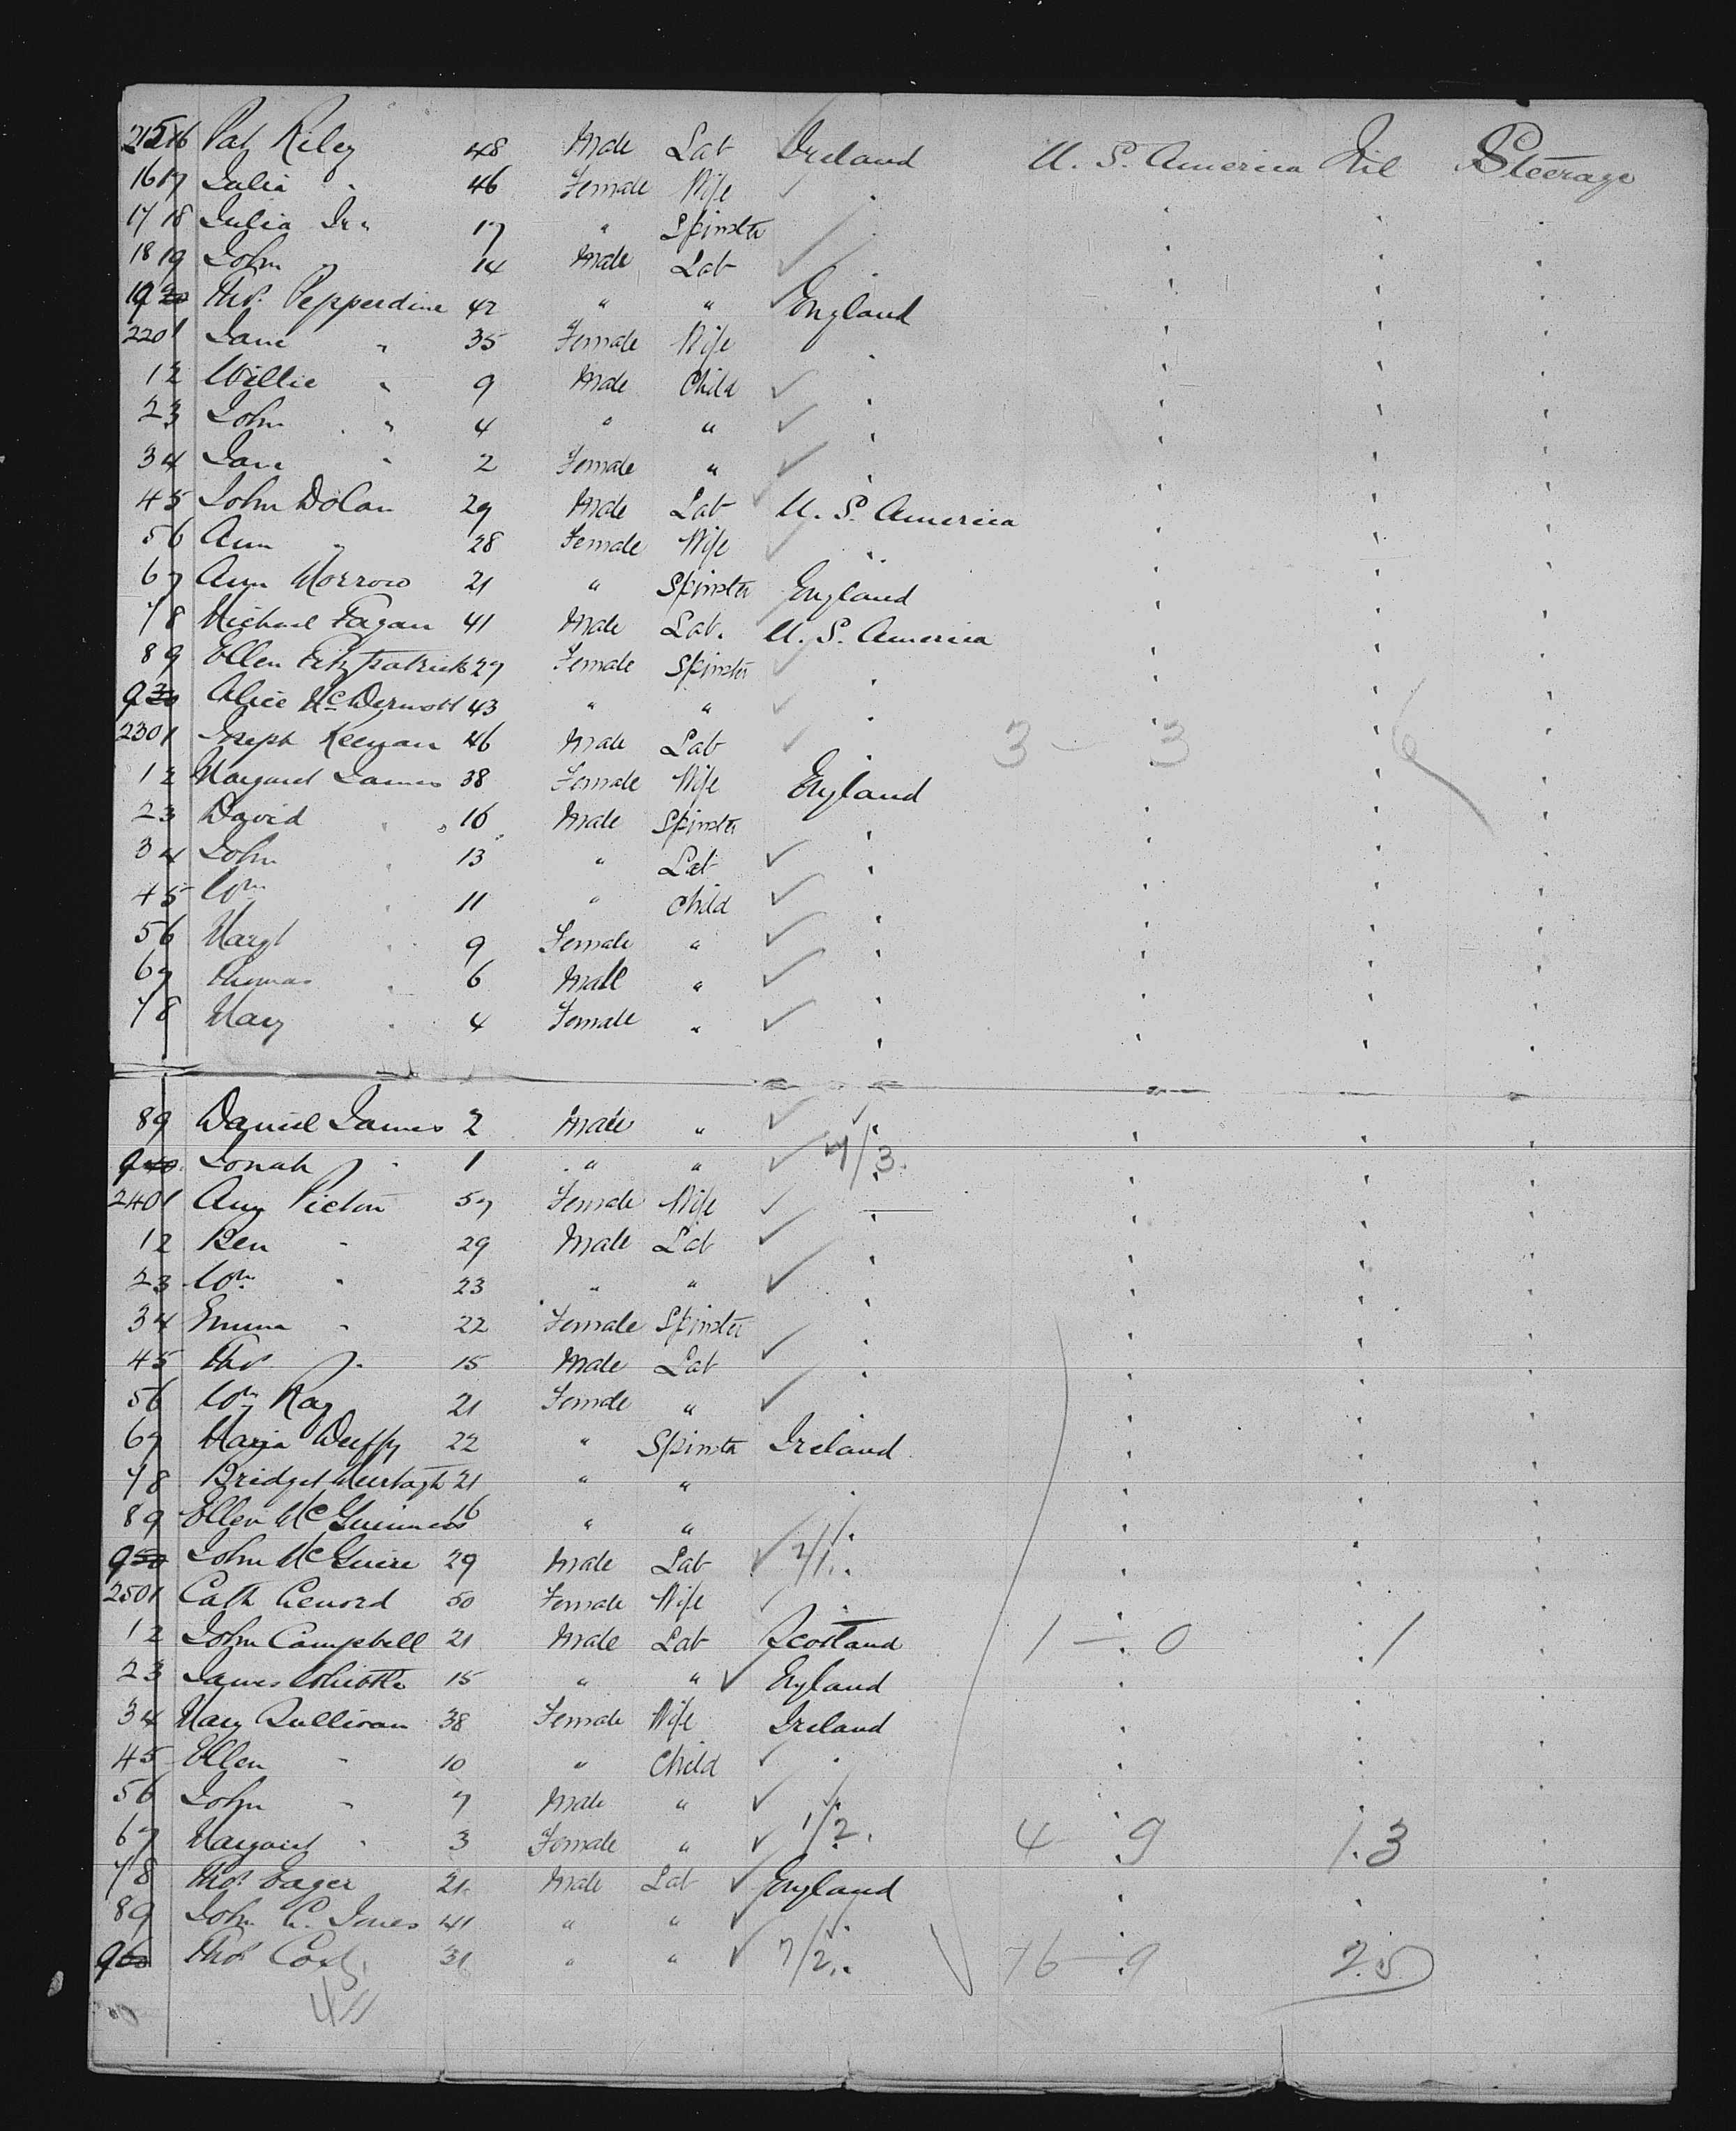 21516 Pat Riley 48 Male Lab Ireland U. S. America Nil Steerage
16 17 Julia " 46 Female Wife "
17 18 Julia Jr " 17 " Spinster
18 19 John " 14 Male Lab "
19 20 Thos. Pepperdine 42 " " England
220 1 Jane " 35 Female Wife "
1 2 Willie " 9 Male Child "
2 3 John " 4 " " "
3 4 Jane " 2 Female " "
4 5 John Dolan 29 Male Lab U. S. America
5 6 Ann " 28 Female Wife "
6 7 Ann Morrow 21 " Spinster England
7 8 Michael Fagan 41 Male Lab. U. S. America
8 9 Ellen Fitzpatrick 27 Female Spinster "
9 30 Alice McDermott 43 " " "
230 1 Joseph Keenan 46 Male Lab " 3 – 3 6
1 2 Margaret James 38 Female Wife England
2 3 David " 16 Male Spinster "
3 4 John " 13 " Lab "
4 5 Wm " 11 " Child "
5 6 Margt " 9 Female " "
6 7 Thomas " 6 Male " "
7 8 Mary " 4 Female " "
8 9 Daniel James 2 Male " "
9 40 Jonah " 1 " " 7/3.
240 1 Amy Picton 57 Female Wife "
1 2 Ben " 29 Male Lab "
2 3 Wm " 23 " " "
3 4 Emma " 22 Female Spinster "
4 5 Thos " 15 Male Lab "
5 6 Wm Ray 21 Female " "
6 7 Maria Duffy 22 " Spinster Ireland
7 8 Bridget Murtagh 21 " " "
8 9 Ellen McGuinness 16 " " "
9 50 John McGuire 29 Male Lab 2/1.
250 1 Cath 50 Female Wife "
1 2 John Campbell 21 Male Lab Scotland 1 – 0 1
2 3 James 15 " " England
3 4 Mary Sullivan 38 Female Wife Ireland
4 5 Ellen " 10 " Child "
5 6 John " 7 Male " "
6 7 Margaret " 3 Female " 1/2. 4 9 13
7 8 Thos. Eager 21 Male Lab England
8 9 John C. Jones 41 " " "
9 60 Thos 31 " " 7/2. 16 – 9 25
45